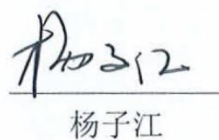 杨子江
杨子江